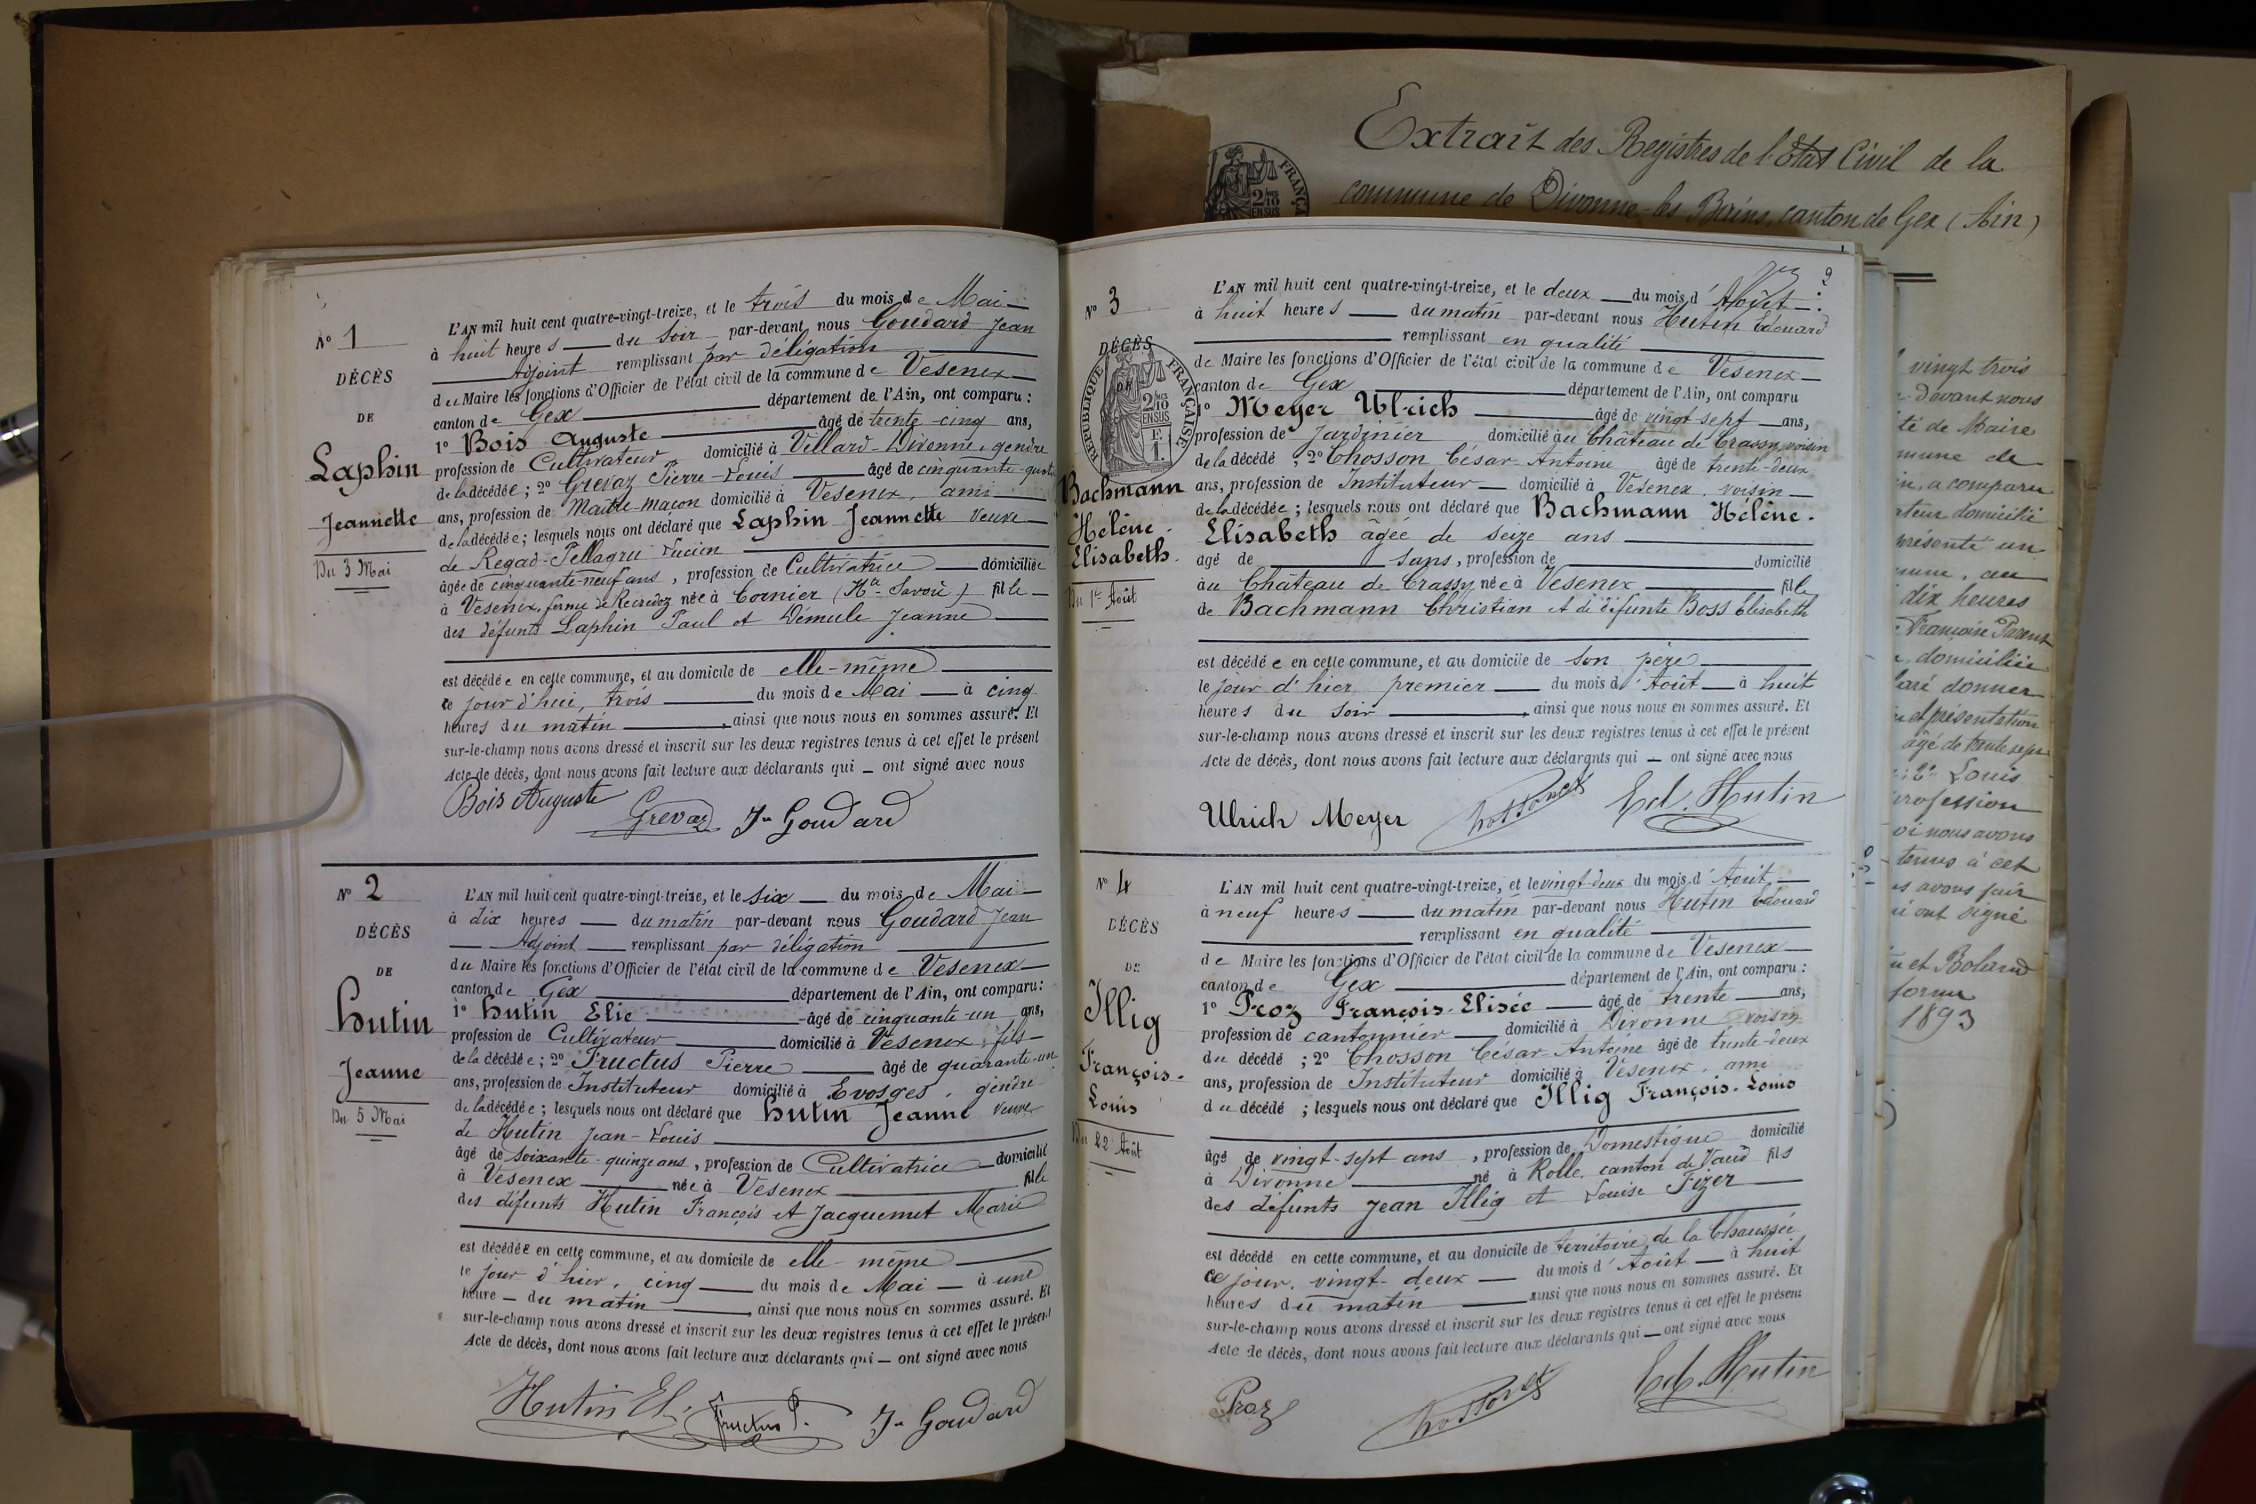 Extrait des Registres de l'Etat Civil de la
commune de Divonne-les Bains, canton de Gex (Ain)
N° 1
DÉCÈS
DE
Laphin
Jeannette
Du 3 Mai
L'AN mil huit cent quatre-vingt-treize, et le trois du mois de Mai
à huit heures du soir par-devant nous Goudard Jean
Adjoint remplissant par délégation
du Maire les fonctions d'Officier de l'état civil de la commune de Vesenex
canton de Gex département de l'Ain, ont comparu :
1° Bois Auguste âgé de trente-cinq ans,
profession de Cultivateur domicilié à Villard-Divonne, gendre
de la décédée ; 2° Grevaz Pierre-Louis âgé de cinquante-quatre
ans, profession de Maître-maçon domicilié à Vesenex, ami
de la décédée ; lesquels nous ont déclaré que Laphin Jeannette veuve
de Regad-Pellagru Lucien
âgée de cinquante-neuf ans, profession de Cultivatrice domiciliée
à Vesenex, ferme de née à Cornier (Hte Savoie) fille
des défunts Laphin Paul et Démule Jeanne
est décédée en cette commune, et au domicile de elle-même
ce jour d'hui, trois du mois de Mai à cinq
heures du matin, ainsi que nous nous en sommes assuré. Et
sur-le-champ nous avons dressé et inscrit sur les deux registres tenus à cet effet le présent
Acte de décès, dont nous avons fait lecture aux déclarants qui ont signé avec nous
Bois Auguste Grevaz Jn Goudard
N° 2
DÉCÈS
DE
Hutin
Jeanne
Du 5 Mai
L'AN mil huit cent quatre-vingt-treize, et le six du mois de Mai
à dix heures du matin par-devant nous Goudard Jean
Adjoint remplissant par délégation
du Maire les fonctions d'Officier de l'état civil de la commune de Vesenex
canton de Gex département de l'Ain, ont comparu :
1° Hutin Elie âgé de cinquante-un ans,
profession de Cultivateur domicilié à Vesenex, fils
de la décédée ; 2° Fructus Pierre âgé de quarante-un
ans, profession de Instituteur domicilié à Evosges, gendre
de la décédée ; lesquels nous ont déclaré que Hutin Jeanne veuve
de Hutin Jean-Louis
âgé de soixante-quinze ans, profession de Cultivatrice domicilié
à Vesenex née à Vesenex fille
des défunts Hutin François et Jacquemet Marie
est décédée en cette commune, et au domicile de elle-même
le jour d'hier, cinq du mois de Mai à une
heure du matin, ainsi que nous nous en sommes assuré. Et
sur-le-champ nous avons dressé et inscrit sur les deux registres tenus à cet effet le présent
Acte de décès, dont nous avons fait lecture aux déclarants qui ont signé avec nous
Hutin El. Fructus P. Jn Goudard
2
N° 3
DÉCÈS
RÉPUBLIQUE FRANÇAISE
Bachmann
Hélène
Elisabeth
Du 1er Août
L'AN mil huit cent quatre-vingt-treize, et le deux du mois d'Août
à huit heures du matin par-devant nous Hutin Edouard
remplissant en qualité
de Maire les fonctions d'Officier de l'état civil de la commune de Vesenex
canton de Gex département de l'Ain, ont comparu
1° Meyer Ulrich âgé de vingt sept ans,
profession de Jardinier domicilié au Château de Crassy, voisin
de la décédé ; 2° Chosson César-Antoine âgé de trente-deux
ans, profession de Instituteur domicilié à Vesenex, voisin
de la décédée ; lesquels nous ont déclaré que Bachmann Hélène-
Elisabeth âgée de seize ans
agé de sans, profession de domicilié
au Château de Crassy née à Vesenex fille
de Bachmann Christian et de défunte Boss Elisabeth
est décédée en cette commune, et au domicile de son père
le jour d'hier, premier du mois d'Août à huit
heures du soir, ainsi que nous nous en sommes assuré. Et
sur-le-champ nous avons dressé et inscrit sur les deux registres tenus à cet effet le présent
Acte de décès, dont nous avons fait lecture aux déclarants qui ont signé avec nous
Ulrich Meyer Ed. Hutin
N° 4
DÉCÈS
DE
Illig
François-
Louis
Du 22 Août
L'AN mil huit cent quatre-vingt-treize, et le vingt-deux du mois d'Août
à neuf heures du matin par-devant nous Hutin Edouard
remplissant en qualité
de Maire les fonctions d'Officier de l'état civil de la commune de Vesenex
canton de Gex département de l'Ain, ont comparu :
1° Proz François-Elisée âgé de trente ans,
profession de cantonnier domicilié à Divonne voisin
du décédé ; 2° Chosson César-Antoine âgé de trente-deux
ans, profession de Instituteur domicilié à Vesenex, ami
du décédé ; lesquels nous ont déclaré que Illig François-Louis
âgé de vingt-sept ans, profession de Domestique domicilié
à Divonne né à Rolle, canton de Vaud fils
des défunts Jean Illig et Louise Fizer
est décédé en cette commune, et au domicile de territoire de la Chaussée
ce jour, vingt-deux du mois d'Août à huit
heures du matin, ainsi que nous nous en sommes assuré. Et
sur-le-champ nous avons dressé et inscrit sur les deux registres tenus à cet effet le présent
Acte de décès, dont nous avons fait lecture aux déclarants qui ont signé avec nous
Proz Ed. Hutin
vingt trois
devant nous
de Maire
de
a comparu
domicilié
présenté un
au
dix heures
Françoise Parent
domiciliée
donner
et présentation
âgé de trente sept
Louis
profession
nous avons
tenus à cet
avons fait
ont signé
et Boland
1893